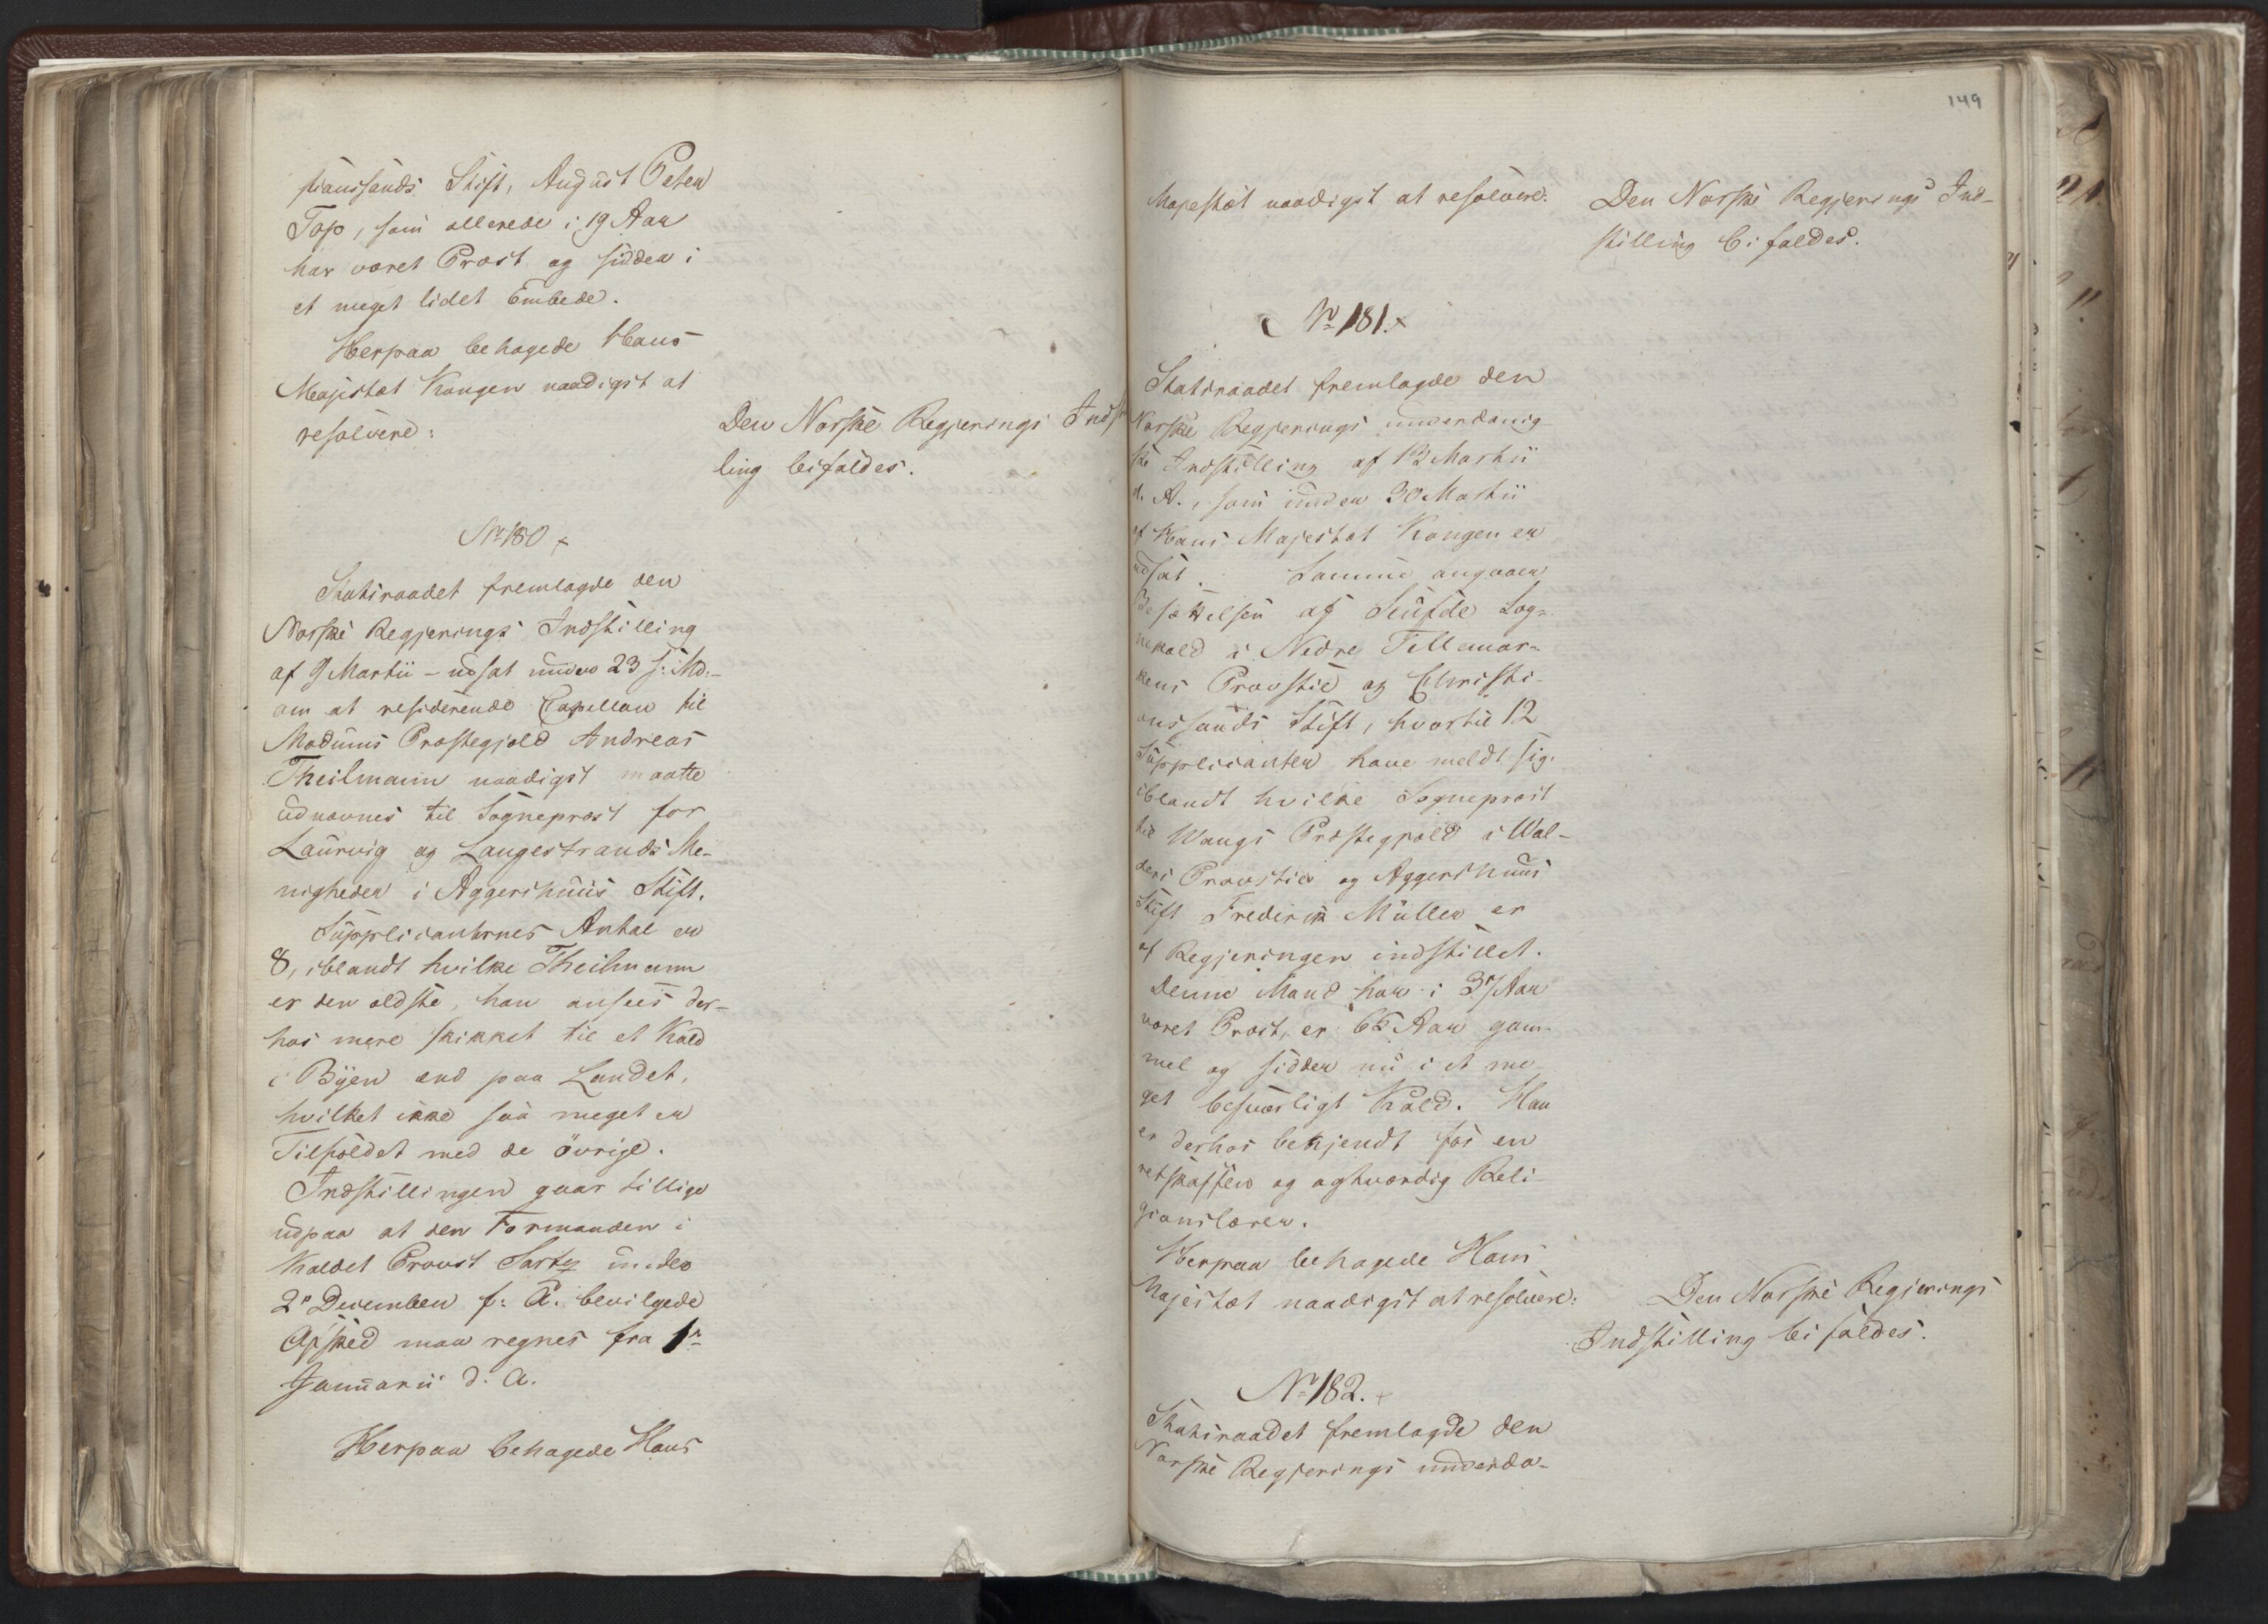 stianssands Stift, August Peter
Top, som allerede i 19 Aar
har været Præst og sidder i
et meget lidet Embede.
Herpaa behagede Hans
Majestæt Kongen naadigst at
resolvere:
Den Norske Regjerings Indst
ling bifaldes.
No 180 x
Statsraadet fremlagde den
Norske Regjerings Indstilling
af 9 Martii - udsat under 23 s: Md:-
om at residerende Capellan til
Modums Præstegjeld Andreas
Theilmann naadigst maatte
udnævnes til Sognepræst for
Laurvig og Langestrands Me-
nigheder i Aggershuus Stift.
Supplicanternes Antal er
8, iblandt hvilke Theilmann
er den ældste, han ansees der-
hos mere skikket til et Kald
i Byen end paa Landet,
hvilket ikke saa meget er
Tilfældet med de övrige.
Indstillingen gaar tillige
ud paa at den Formanden i
Kaldet Provst under
2 December f: A. bevilgede
Afsked maa regnes fra 1
Januarii d. A.
Herpaa behagede Hans
149
Majestæt naadigst at resolvere:
Den Norske Regjerings Ind-
stilling bifaldes.
No 181. x
Statsraadet fremlagde den
Norske Regjerings underdanig-
ste Indstilling af 13 Martii
d. A., som under 30 Martii
af Hans Majestæt Kongen er
udsat. Samme angaaer
Besættelsen af Seufde Sog-
nekald i Nedre Tellemar-
kens Provstie og Christi-
anssands Stift, hvortil 12
Supplicanter have meldt sig.
iblandt hvilke Sognepræst
til Wangs Præstegjæld i Wal-
ders Provstie og Aggershuus
Stift Frederik Müller er
af Regjeringen indstillet.
Denne Mand har i 37 Aar
været Præst, er 65 Aar gam-
mel og sidder nu i et me-
get besværligt Kald. Han
er derhos bekjendt for en
retskaffen og agtværdig Reli-
gionslærer.
Herpaa behagede Hans
Majestæt naadigst at resolvere:
Den Norske Regjerings
Indstilling bifaldes.
No 182. x
Statsraadet fremlagde den
Norske Regjerings underda-